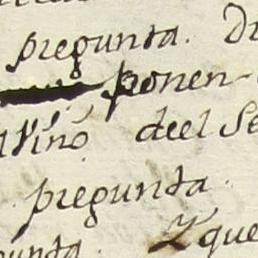 pregunta. Di
ponen
Vino deel Se
pregunta.
gunta. Y que